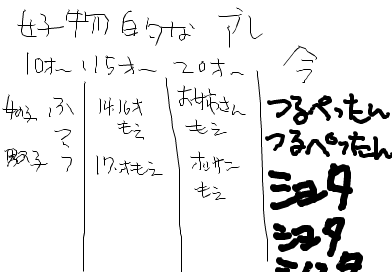 好物的なアレ
10才～ 15才～ 20才～ 今
女の子 ふつう 14.16才もえ お姉さんもえ つるぺったん
つるぺったん
男の子 17.才もえ オッサンもえ ショタ
ショタ